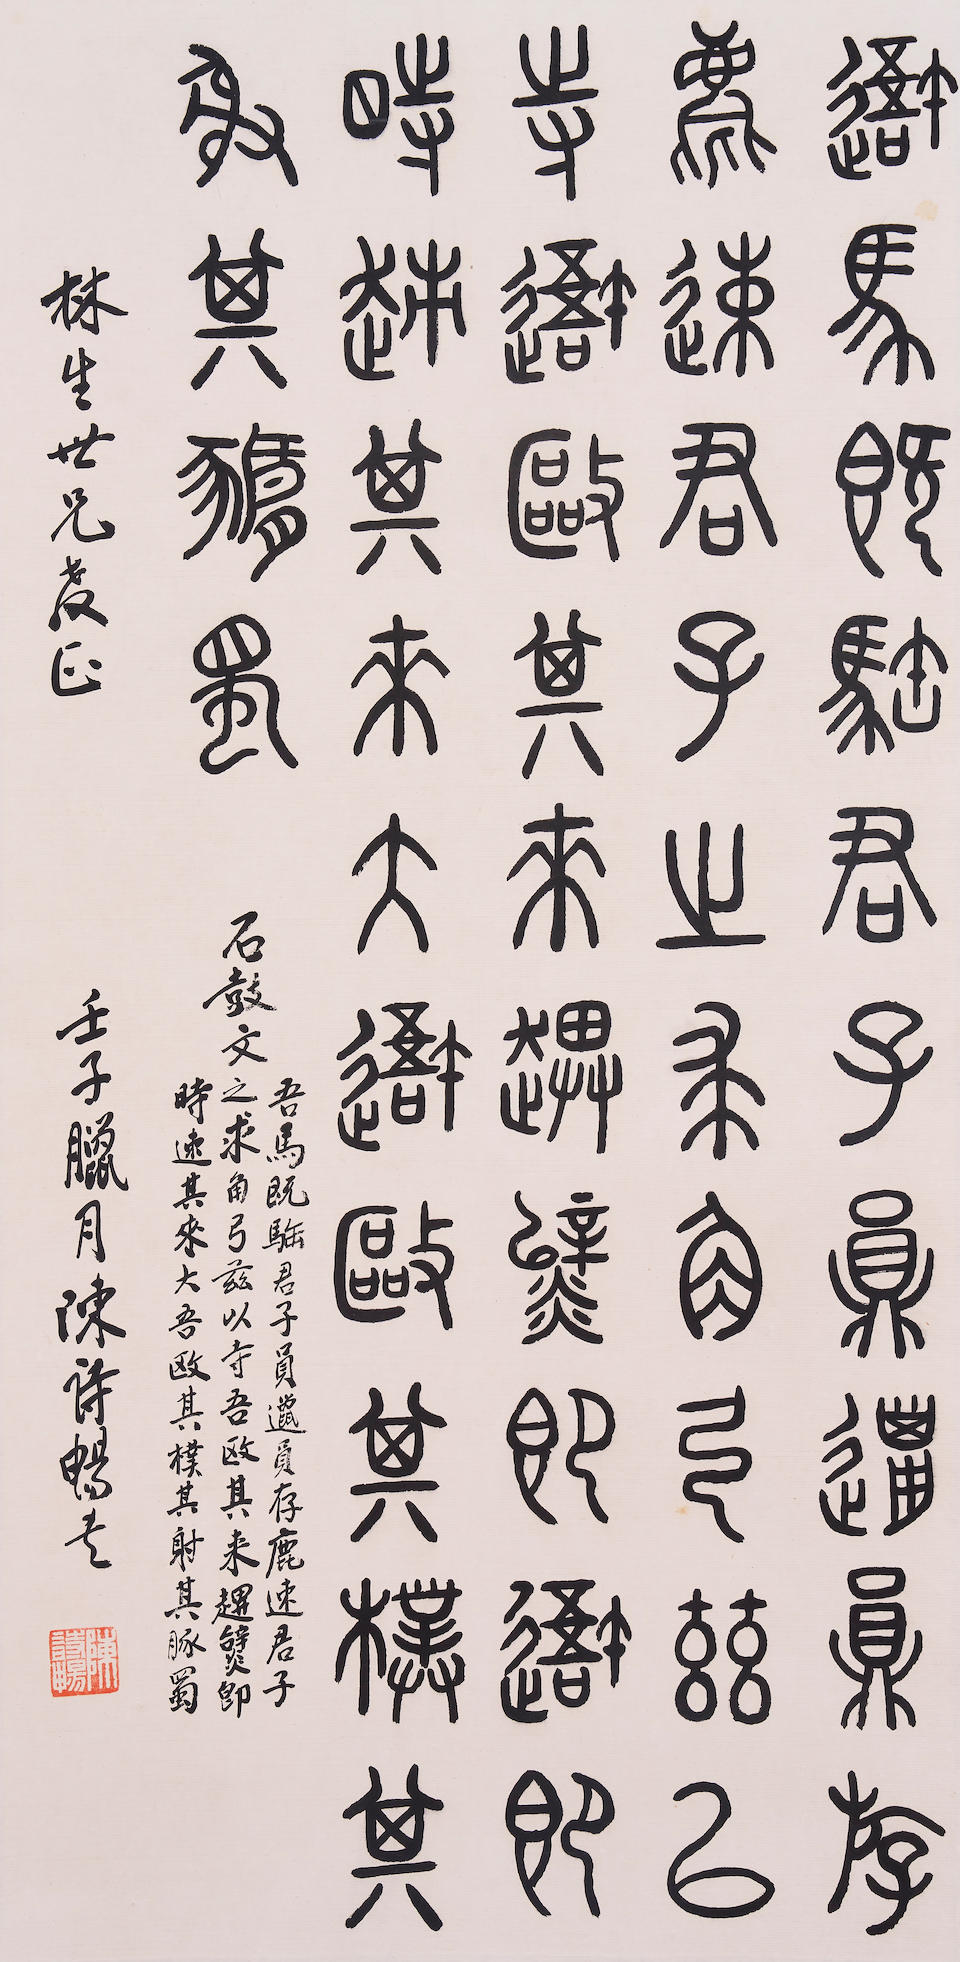 吾馬既君子員邋員存
麀速君子之求角弓茲以
寺吾毆其來趩即吾即
時其來大吾毆其樸其
射其蜀
石鼓文
吾馬既君子員邋員存鹿速君子
之求角弓茲以寺吾毆其来趩即
時速其來大吾毆其樸其射其豚蜀
林生世兄教正
壬子臘月陳詩暢書
陳詩暢